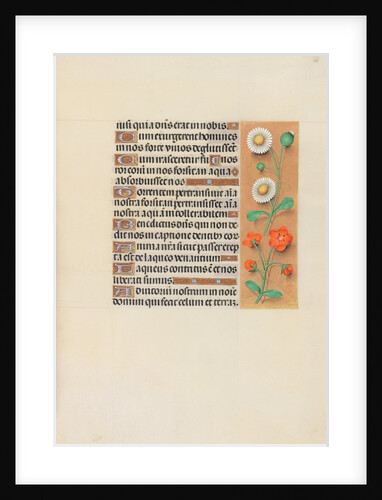 nisi quia dn̄s erat in nobis.
Cum exurgerent homines
in nos forte viuos deglutissent
Cum irasceretur furor
in nos forsitan aqua
absorbuisset nos
Torrentem pertransiuit aīa
nostra forsitan pertransisset aīa
nostra aquam intollerabilem
Benedictus dn̄s qui non de
dit nos in captionē dentibus
Anima nr̄a sicut passer erep
ta est de laqueo venantium
Laqueus contritus est et nos
liberati sumus
Adiutoriū nostrum in noīe
domini qui fecit celum et terrā.